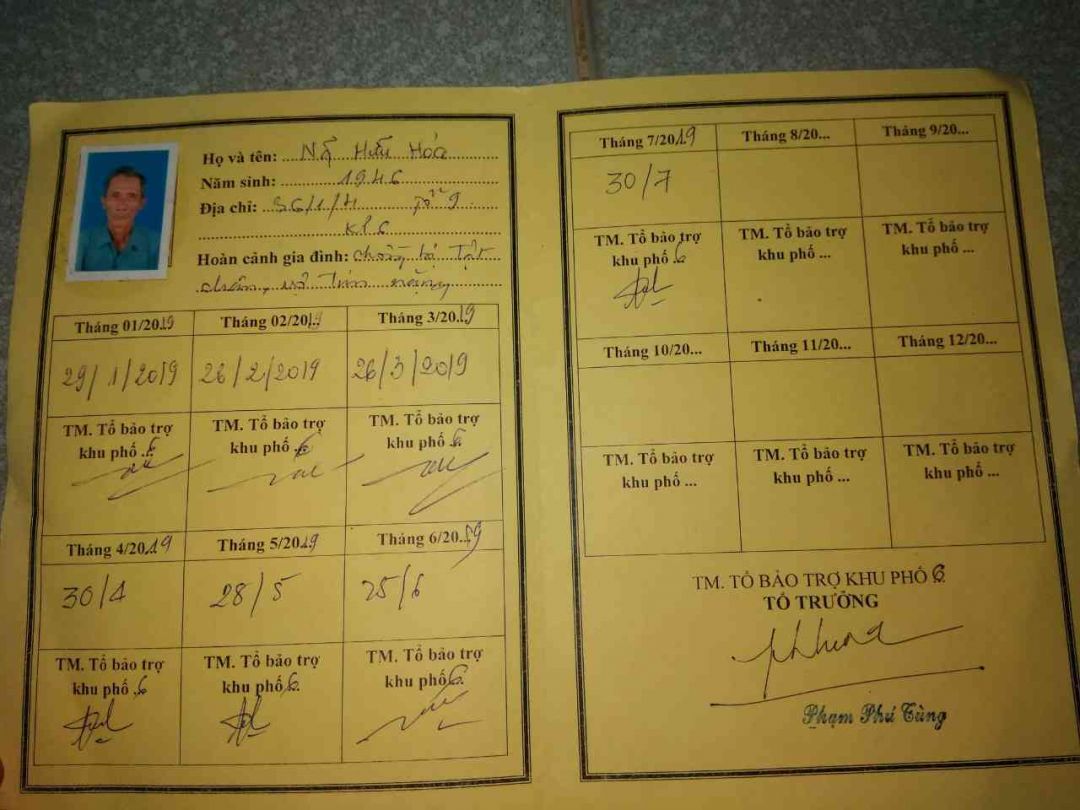 Họ và tên: Ng Hữu Hóa
Năm sinh: 1946
Địa chỉ: 56/1/4 Tổ 9
KP6
Hoàn cảnh gia đình: chồng bị tật
chân, vợ
Tháng 01/2019 Tháng 02/2019 Tháng 3/2019
29/1/2019 26/2/2019 26/3/2019
TM. Tổ bảo trợ TM. Tổ bảo trợ TM. Tổ bảo trợ
khu phố 6 khu phố 6 khu phố 6
Tháng 4/2019 Tháng 5/2019 Tháng 6/2019
30/4 28/5 25/6
TM. Tổ bảo trợ TM. Tổ bảo trợ TM. Tổ bảo trợ
khu phố 6 khu phố 6 khu phố 6
Tháng 7/2019 Tháng 8/20... Tháng 9/20...
30/7
TM. Tổ bảo trợ TM. Tổ bảo trợ TM. Tổ bảo trợ
khu phố 6 khu phố ... khu phố ...
Tháng 10/20... Tháng 11/20... Tháng 12/20...
TM. Tổ bảo trợ TM. Tổ bảo trợ TM. Tổ bảo trợ
khu phố ... khu phố ... khu phố ...
TM. TỔ BẢO TRỢ KHU PHỐ 6
TỔ TRƯỞNG
Phạm Phú Tùng